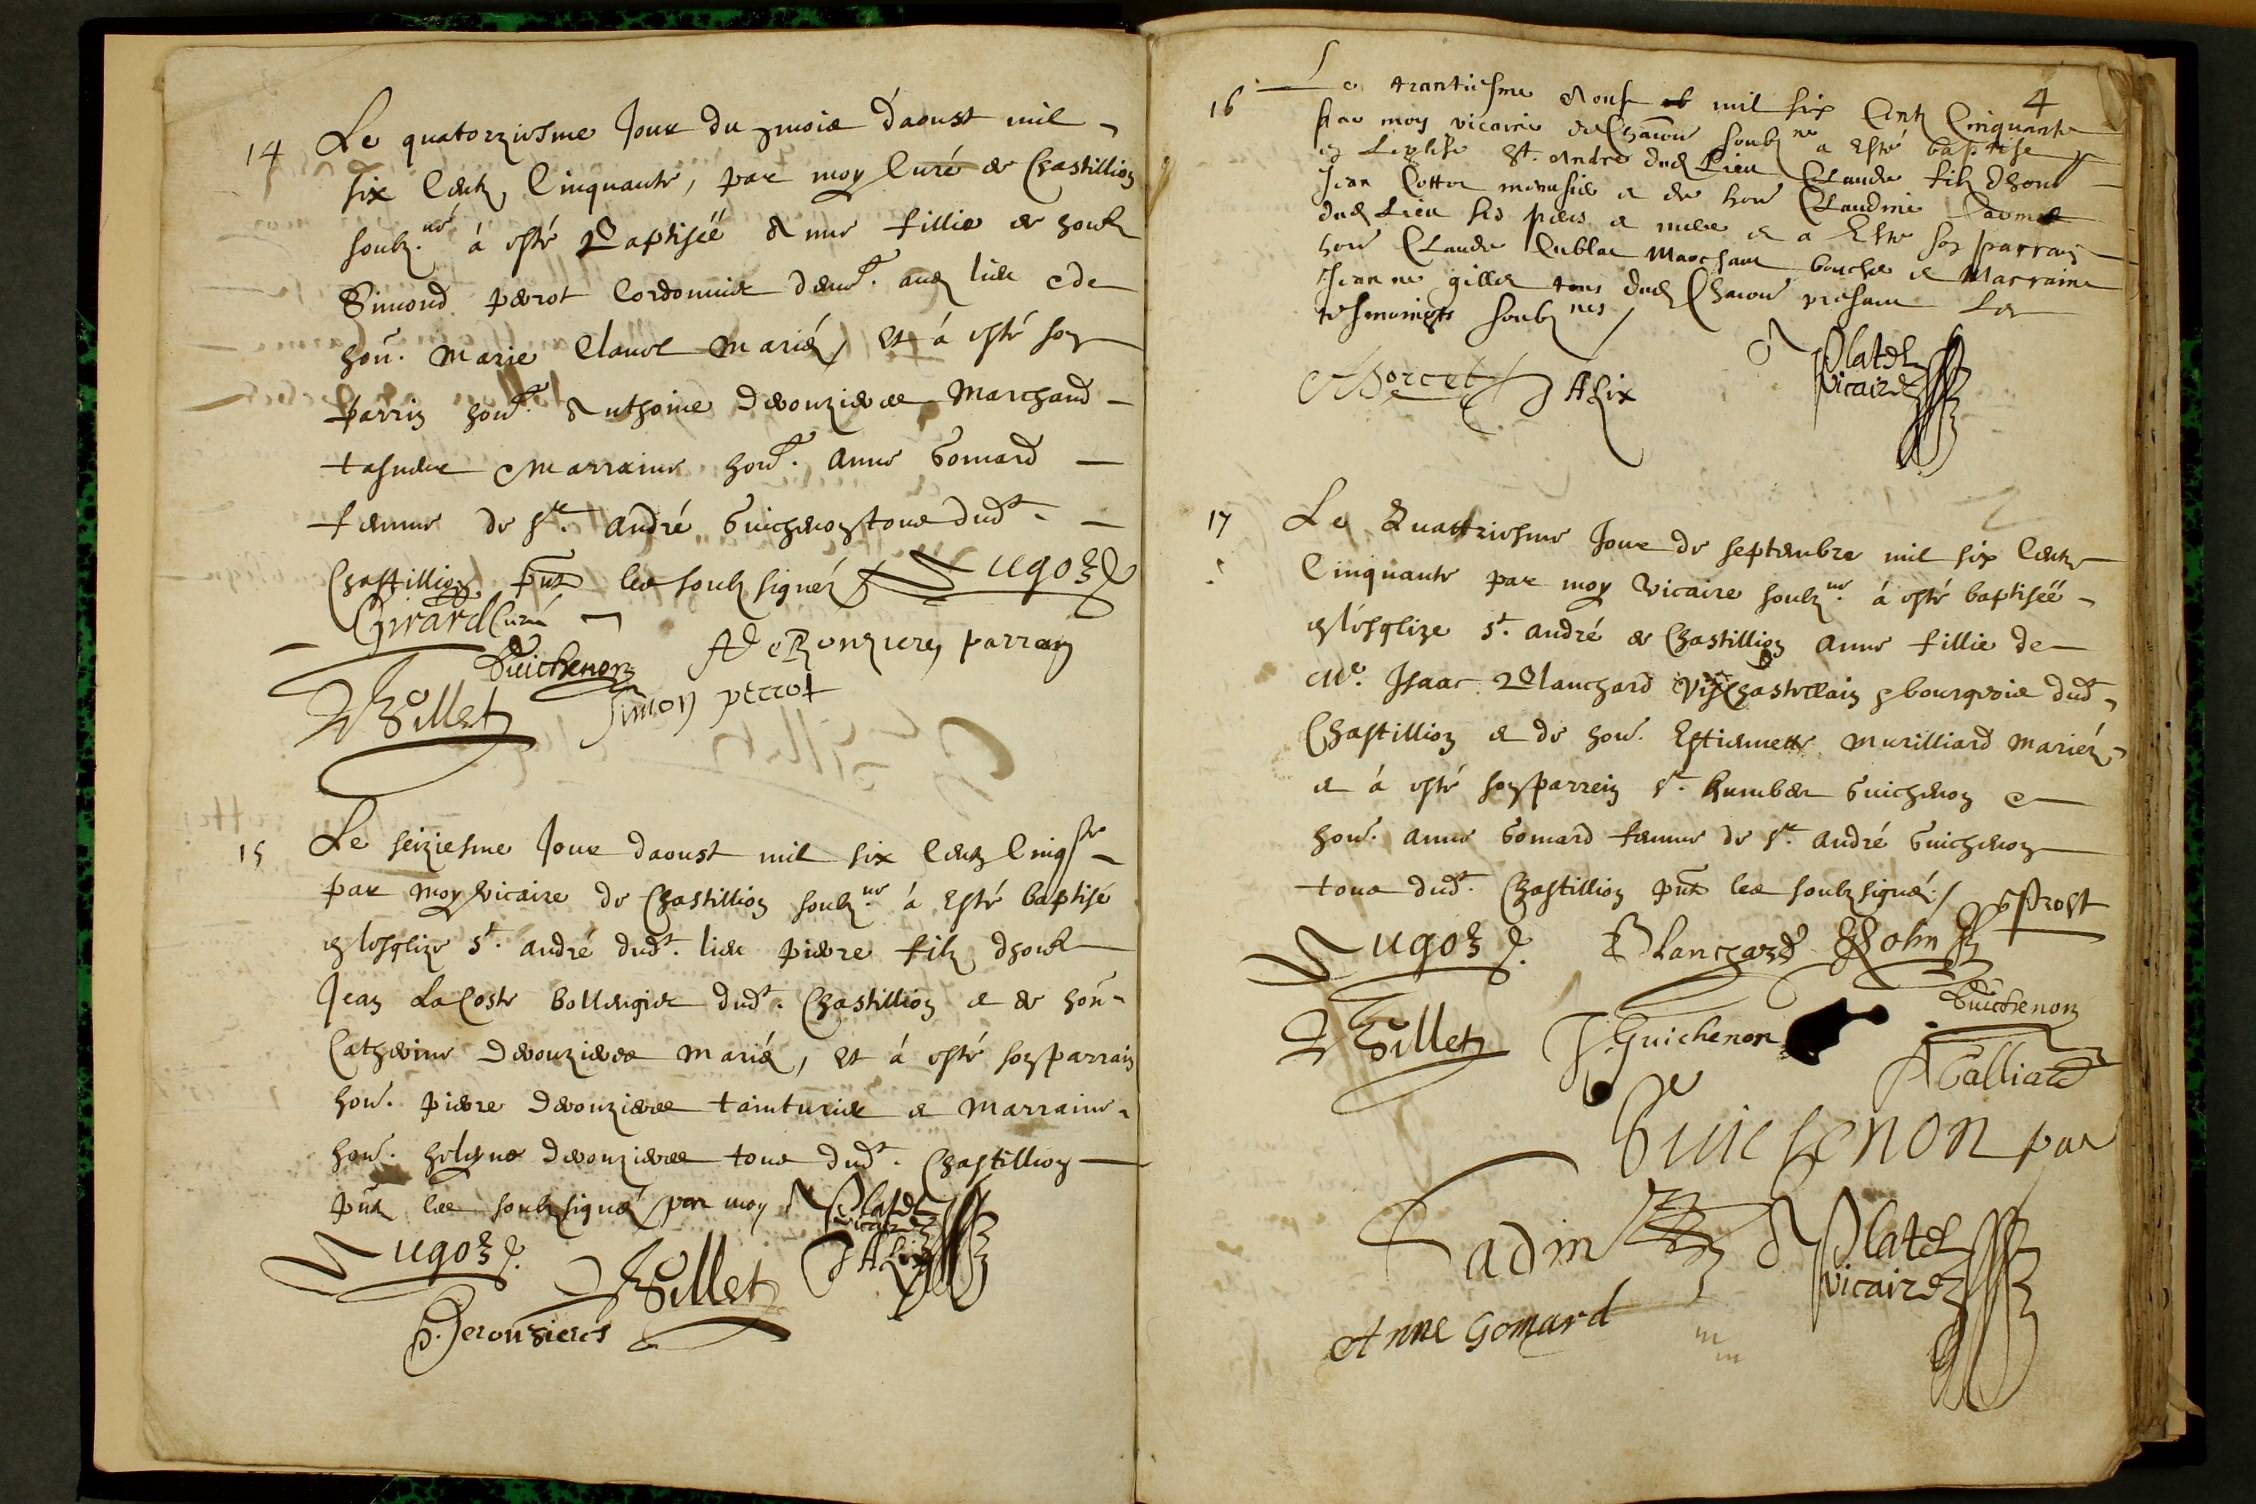 14
Le quatorziesme Jour du mois d'aoust mil
six Centz Cinquante, par moy Curé de Chastillion
soubz.né à esté Baptiséé Anne fillie de hon.ble
Simond perrot Cordonnier dem.t aud lieu & de
hon. Marie Clavel Mariés, Et à esté son
parrin hon.ble Anthoine Derouzieres Marchand
tasneur & Marraine hon.ble Anne Gomard
femme de s.r André Guichenon tous dud.t
Chastillion pnts les soubz signés Hugon
Girard Curé
Guichenon ADeRouzieres parrain
Billet Simon perrot
15
Le seiziesme Jour daoust mil six Centz Cinq.te
par moy vicaire de Chastillion soubz.né à Esté baptisé
en l'esglize S.t André dud.t lieu pierre filz d'hon.ble
Jean LaCoste bollengier dud.t Chastillion & de hon.
Catherine Derouzieres Mariés, Et à esté son parrain
hon. pierre Derouzieres tainturier & Marraine
hon. helene Derouzieres tous dud.t Chastillion
pnts les soubz signés par moy Platel
vicaire
Hugon Billet J Alix
P. Derouzieres
4
16
Le trantiesme Aoust mil six Centz Cinquante
par moy vicaire de Chaton soubz né a Esté baptisé
en L'eglise St. Andre dud Lieu Claude filz d'hon
Jean Cottet menusier & de hon Claudine
dud Lieu ses pere & mere & a Este son parrain
hon Claude Cublat Marchant boucher & Marraine
Jeanne gillet tous dud Chaton presant Les
tesmoingts soubz nés
Morcel J Alix Platel
vicaire
17
Le Quattriesme Jour de septembre mil six Centz
Cinquante par moy Vicaire soubz.né à esté baptiséé
en l'esglize S.t André de Chastillion Anne fillie de
M.e Isaac Blanchard Vischastellain & bourgeois dud.t
Chastillion & de hon. Estiennette Murilliard Mariés
& à esté son parrein s.r humbert Guichenon &
hon. Anne Gomard femme de s.r André Guichenon
tous dud.t Chastillion pnts les soubz signés. Prost
Hugon Blanchard
Billet Guichenon Guichenon
Galliard
Guichenon par
Platel
vicaire
Anne Gomard